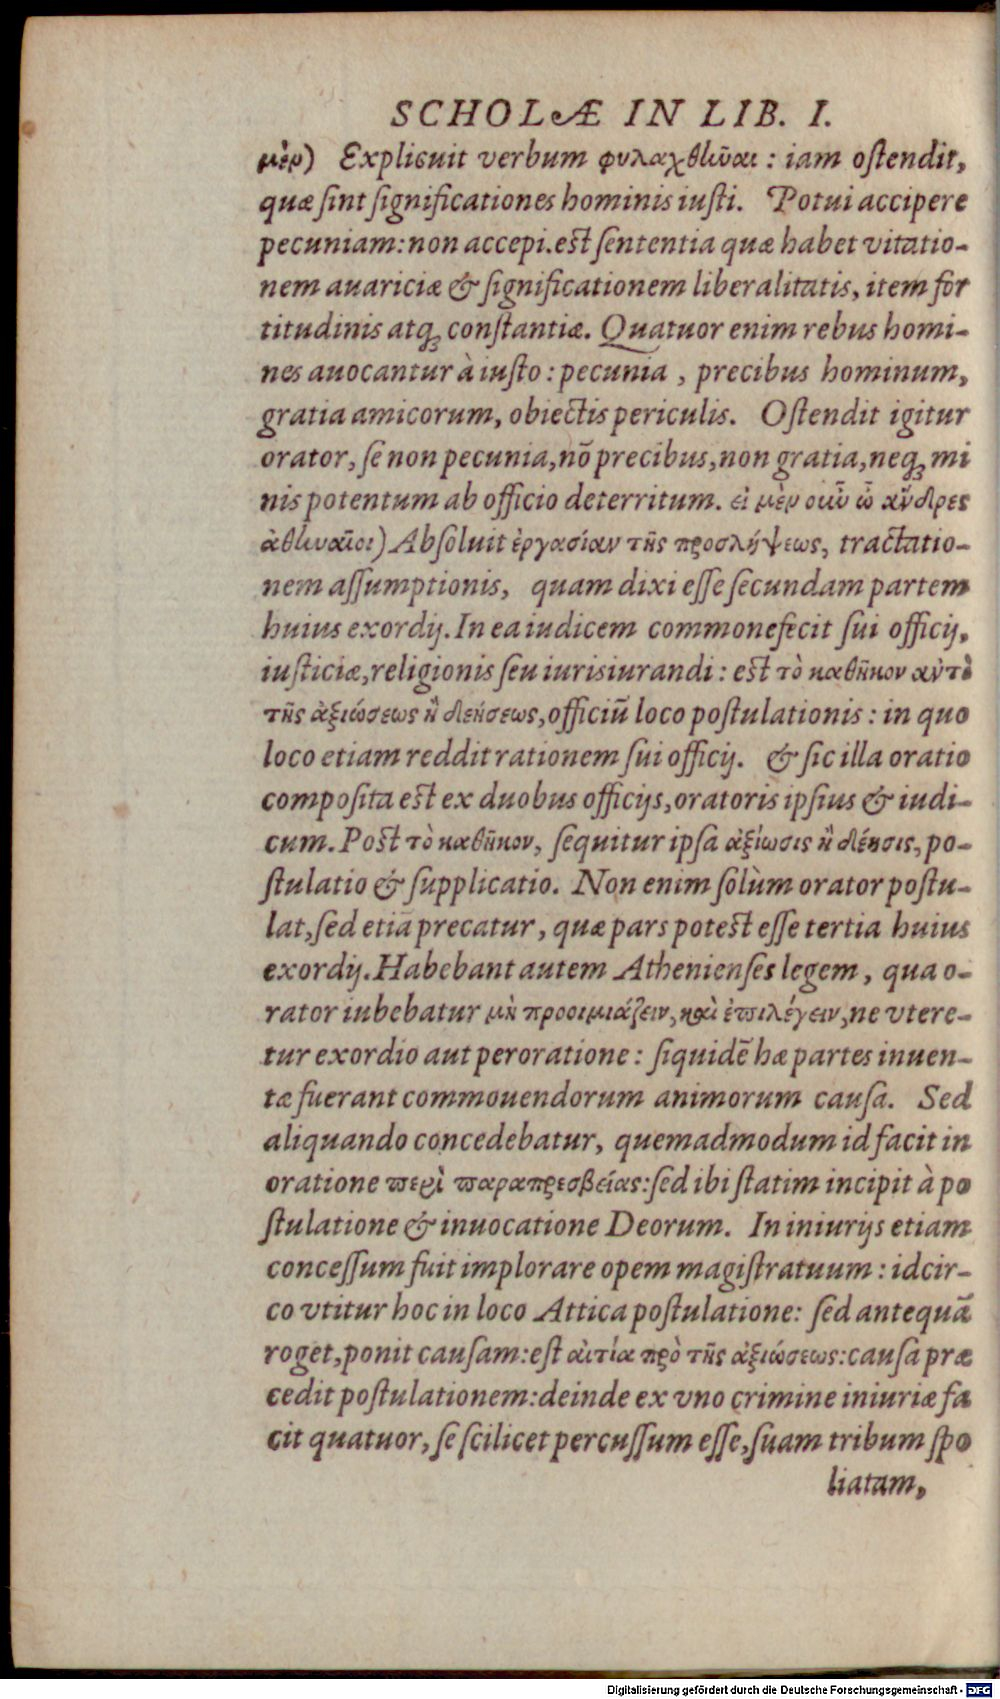 SCHOLÆ IN LIB. I.
μὲν) Explicuit verbum φυλαχθῆναι : iam oſtendit,
quæ ſint ſignificationes hominis iuſti. Potui accipere
pecuniam: non accepi. eſt ſententia quæ habet vitatio-
nem auariciæ & ſignificationem liberalitatis, item for
titudinis atqꝫ conſtantiæ. Quatuor enim rebus homi-
nes auocantur à iuſto : pecunia , precibus hominum,
gratia amicorum, obiectis periculis. Oſtendit igitur
orator, ſe non pecunia, nõ precibus, non gratia, neqꝫ mi
nis potentum ab officio deterritum. εἰ μὲν οὖν ὦ ἄνδρες
ἀθηναῖοι) Abſoluit ἐργασίαν τῆς προσλήψεως, tractatio-
nem aſſumptionis, quam dixi eſſe ſecundam partem
huius exordij. In ea iudicem commonefecit ſui officij,
iuſticiæ, religionis ſeu iurisiurandi : eſt τὸ καθῆκον αὐτὸ
τῆς ἀξιώσεως ἢ δεήσεως, officiũ loco poſtulationis : in quo
loco etiam reddit rationem ſui officij. & ſic illa oratio
compoſita eſt ex duobus officijs, oratoris ipſius & iudi-
cum. Poſt τὸ καθῆκον, ſequitur ipſa ἀξίωσις ἢ δέησις, po-
ſtulatio & ſupplicatio. Non enim ſolùm orator poſtu-
lat, ſed etiã precatur, quæ pars poteſt eſſe tertia huius
exordij. Habebant autem Athenienſes legem, qua o-
rator iubebatur μὴ προοιμιάζειν, καὶ ἐπιλέγειν, ne vtere-
tur exordio aut peroratione : ſiquidẽ hæ partes inuen-
tæ fuerant commouendorum animorum cauſa. Sed
aliquando concedebatur, quemadmodum id facit in
oratione περὶ παραπρεσβείας: ſed ibi ſtatim incipit à po
ſtulatione & inuocatione Deorum. In iniurijs etiam
conceſſum fuit implorare opem magiſtratuum : idcir-
co vtitur hoc in loco Attica poſtulatione: ſed antequã
roget, ponit cauſam: eſt αἰτία πρὸ τῆς ἀξιώσεως: cauſa præ
cedit poſtulationem: deinde ex vno crimine iniuriæ fa
cit quatuor, ſe ſcilicet percuſſum eſſe, ſuam tribum ſpo
liatam,
Digitalisierung gefördert durch die Deutsche Forschungsgemeinschaft - DFG